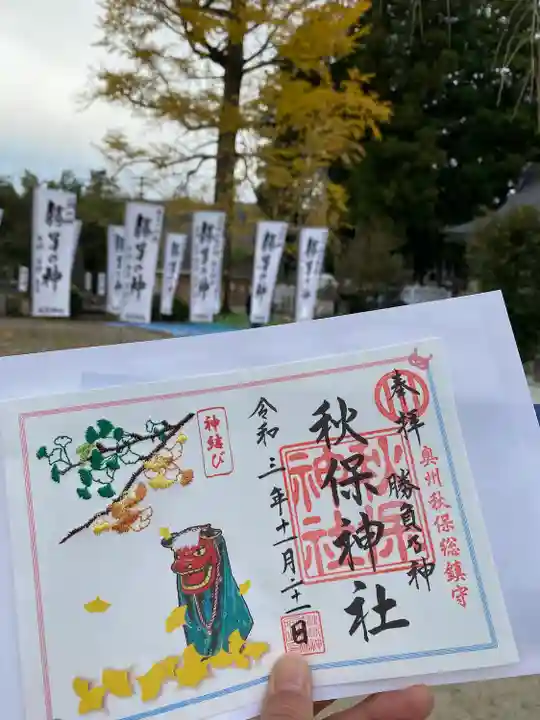 勝負の神
勝負の神
勝負の神
勝負の神
勝負の神
奉拝
勝負乃神
奥州秋保総鎮守
秋保神社
秋保
神社
令和三年十一月二十一日
神結び